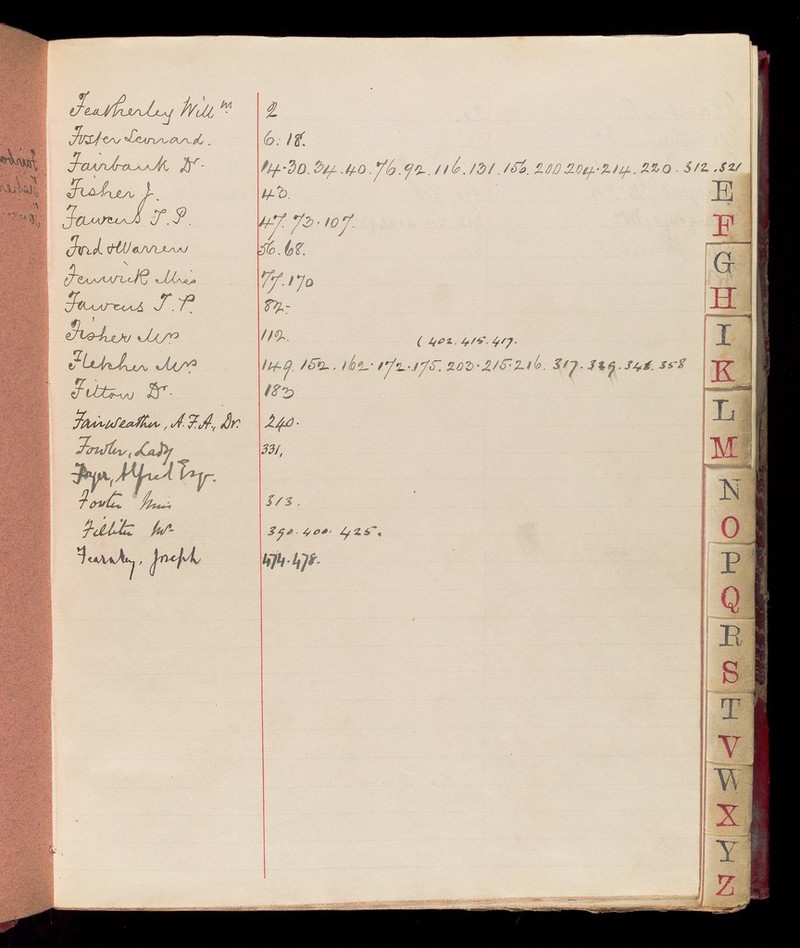 Featherley Willm 2
Foster Leonard. 6. 18.
Fairbank Dr. 14. 30. 34. 40. 76. 92. 116. 131. 156. 200 204. 214. 220. 312. 321
Fisher J. 43.
Fawcus T. P. 47. 73. 107.
Ford & Warren 56. 68.
Fenwick Miss 77. 170
Fawcus T. P. 82.
Fisher Mrs 112.
( 402. 415. 417.
Fletcher Mrs 149. 152. 162. 172. 175. 203. 215. 216. 317. 339. 348. 358
Fitton Dr. 183
Fairweather, A. F. A., Dr. 240.
Fowler, Lady 331,
Alfred Esqr.
Foster Miss 313.
Filliter Mr 390. 400. 425.
Fearnley, Joseph 474. 478.
E
F
G
H
I
K
L
M
N
O
P
Q
R
S
T
V
W
X
Y
Z